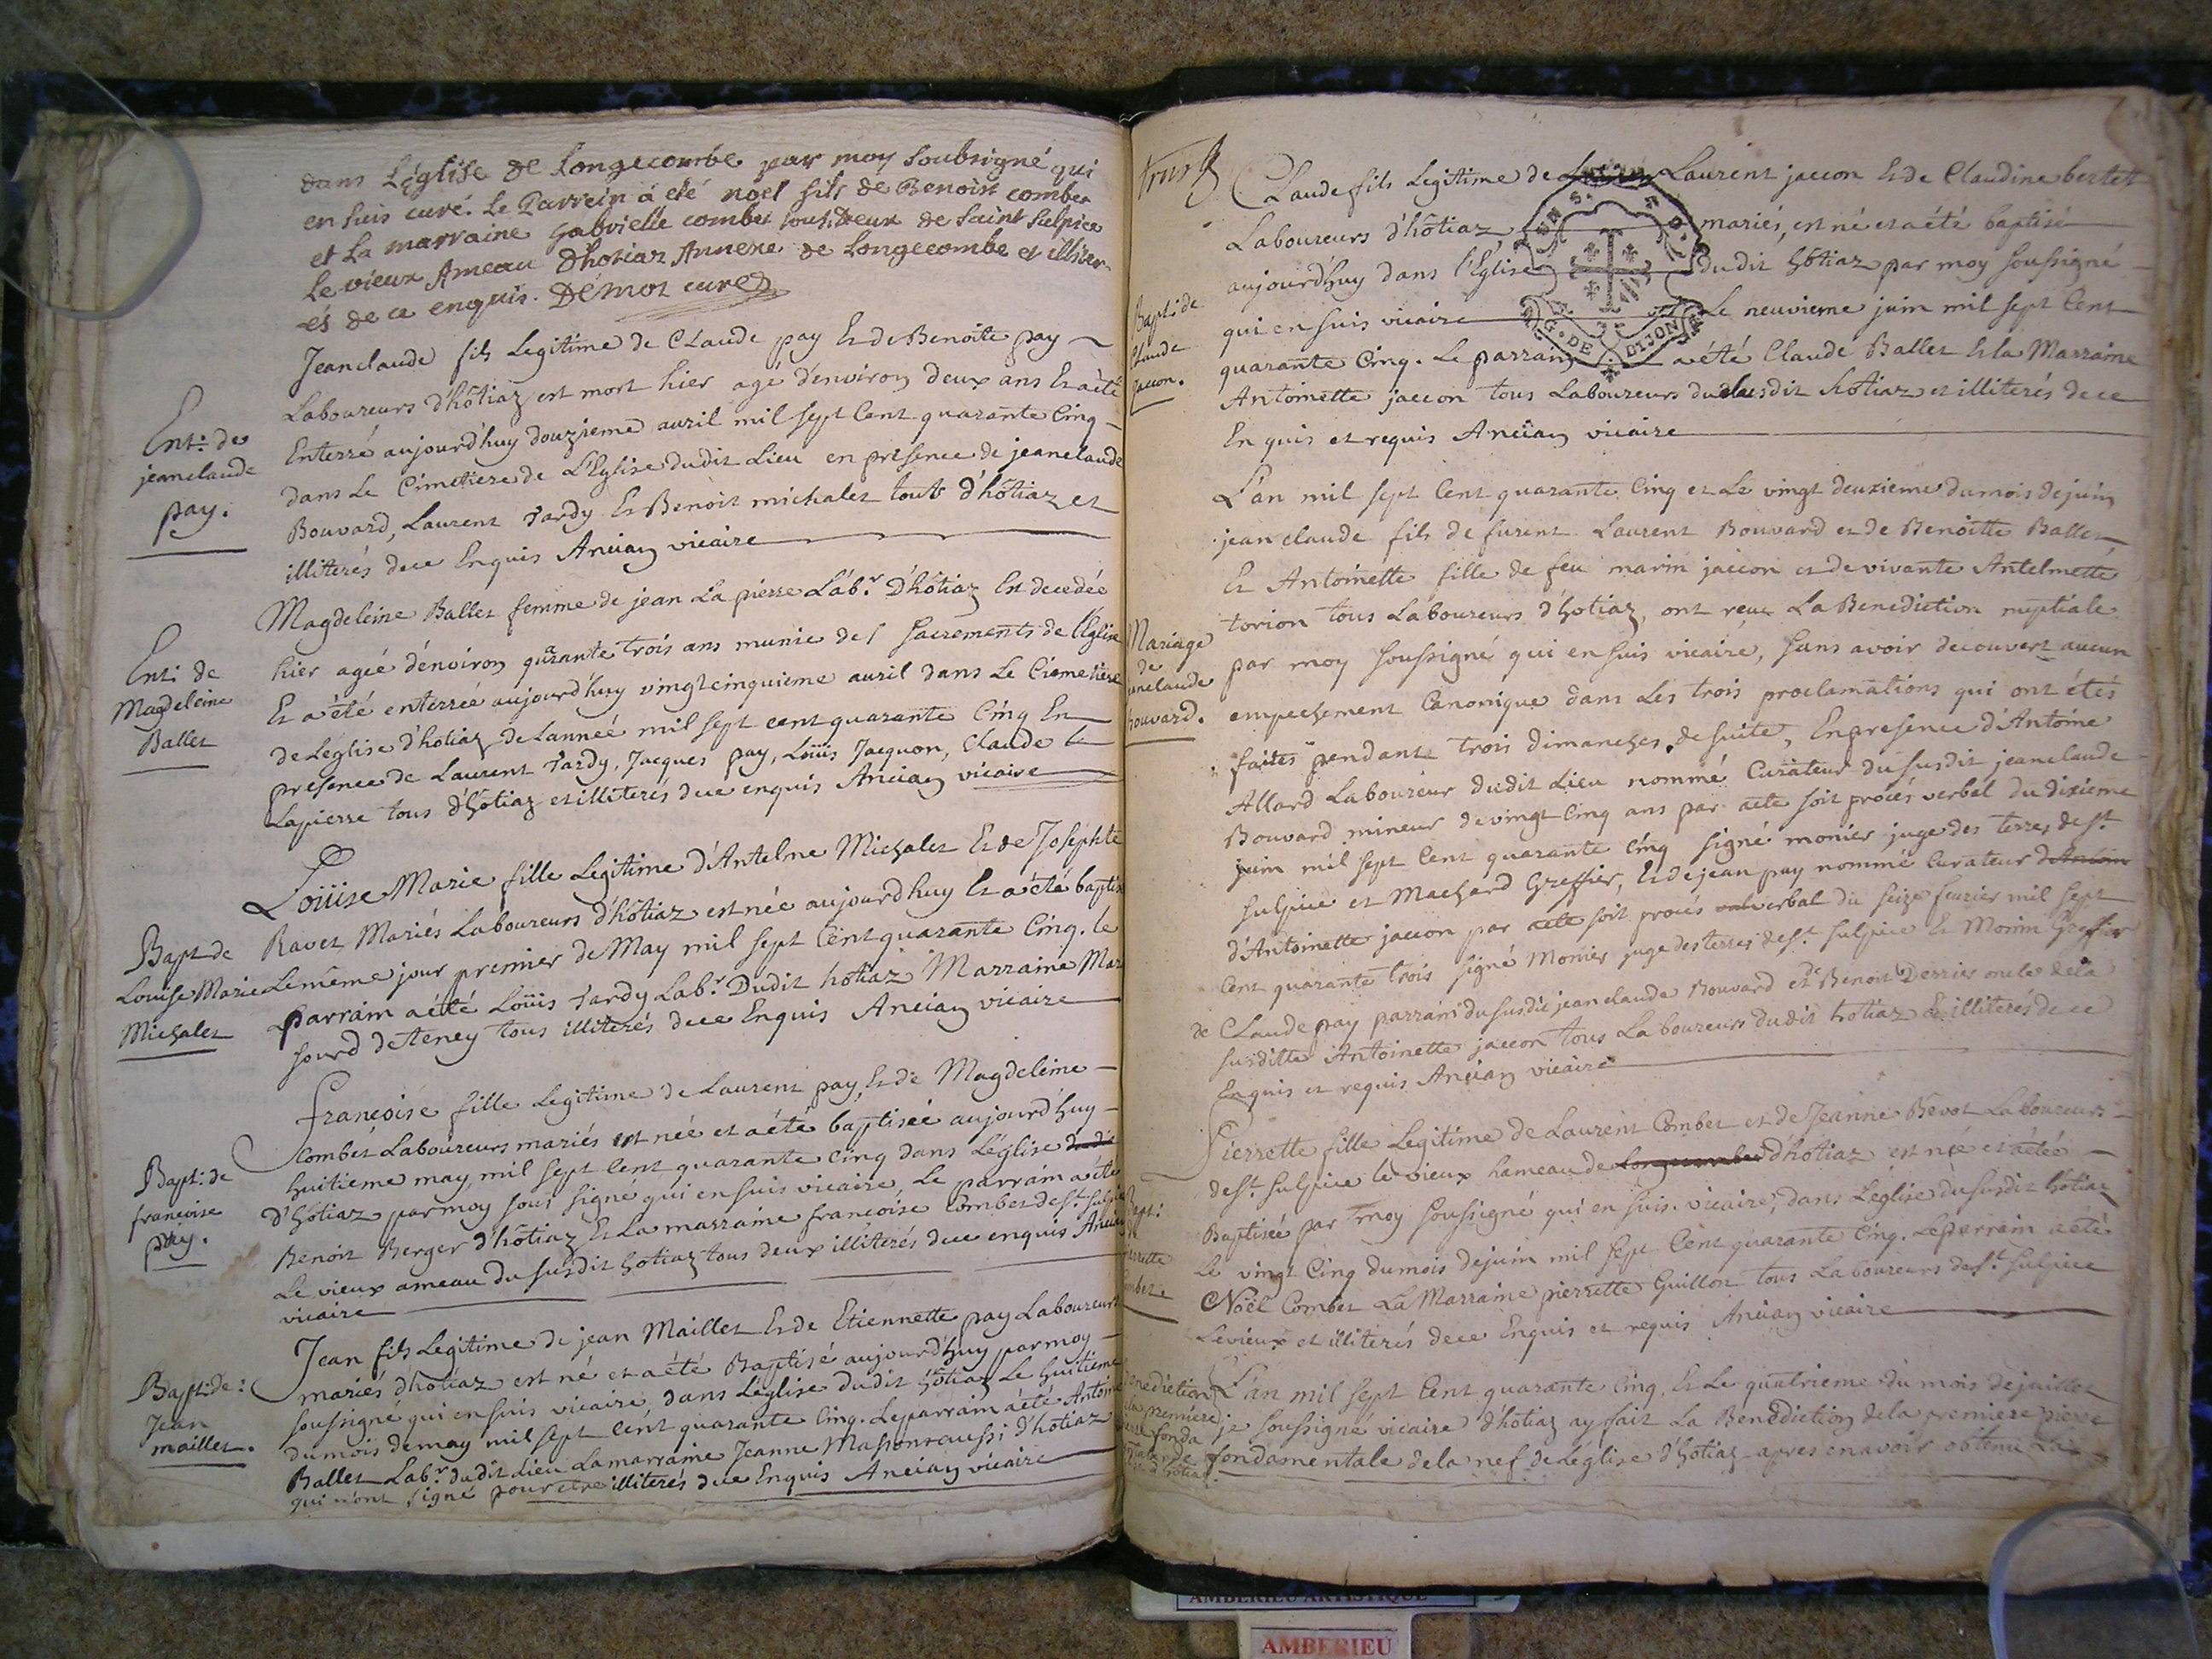 dans L'église de Longecombe par moy soubsigné qui
en suis curé. Le Parrein á eté noël fils de Benoist combet
et La marraine Gabrielle combet tous deux de saint sulpice
Le vieux Ameau d'hotiaz Annexe de Longecombe et illiter-
-és de ce enquis. Démot curé
Ent: de
jeanclaude
pay.
Jeanclaude fils Legitime de Claude pay Et de Benoite pay
Laboureurs d'hôtiaz est mort hier agé d'environ deux ans Et a été
Enterré aujourd'huy douzieme auril mil sept Cent quarante Cinq
dans Le Cimetiere de L'Eglise dudit Lieu en présence de jeanclaude
Bouvard, Laurent tardy Et Benoit michalet touts d'hôtiaz et
illiterés de ce Enquis Ancian vicaire
Ent: de
Magdeleine
Ballet
Magdeleine Ballet femme de jean La pierre Lab.r D'hôtiaz Est decedée
hier agée d'environ quarante trois ans munie des sacrements de l'Eglise
Et a été enterrée aujourd'huy vingt cinquieme auril dans Le Cimetiere
de Léglise d'hôtiaz de L'année mil sept cent quarante Cinq En
présence de Laurent tardy, Jacques pay, Loüis Jacquon, Claude
Lapierre tous d'hôtiaz et illiterés de ce enquis Ancian vicaire
Bapt: de
Louise Marie
Michalet
Loüise Marie fille Legitime d'Antelme Michalet Et de Josephte
Ravet Mariés Laboureurs d'hôtiaz est née aujourd'huy Et a été baptis
Le même jour premier de May mil sept Cent quarante Cinq. le
parrain a été Loüis tardy Lab.r Dudit hotiaz Marraine Mar
sourd de teney tous illiterés de ce Enquis Ancian vicaire
Bapt: de
françoise
pay.
françoise fille Legitime de Laurent pay, Et de Magdeleine
Combet Laboureurs mariés est née et a été baptisée aujourd'huy
huitieme may, mil sept Cent quarante cinq dans L'église
d'hôtiaz par moy sous signé qui en suis vicaire, Le parrain a été
Benoit Berger d'hôtiaz Et La marraine françoise Combet de s.t sulpice
Le vieux ameau du susdit hotiaz tous deux illiterés de ce enquis Ancian
vicaire
Bapt: de:
Jean
maillet.
Jean fils Legitime de jean Maillet Et de Etiennette pay Laboureurs
mariés d'hotiaz est né et a été Baptisé aujourd'huy par moy
soussigné qui en suis vicaire, dans L'église dudit hôtiaz Le huitieme
du mois de may mil sept Cent quarante Cinq. Le parrain a été Antoine
Ballet Lab.r dudit Lieu La marraine Jeanne Masson aussi d'hotiaz
qui n'ont signé pour etre illiterés de ce Enquis Ancian vicaire
Bapt: de
Claude
jaccon.
Claude fils Legitime de Laurent jaccon Et de Claudine bertet
Laboureurs d'hôtiaz mariés, est né et a été baptisé
aujourd'huy dans l'Eglise dudit hôtiaz par moy soussigné
qui en suis vicaire Le neuvieme juin mil sept Cent
quarante Cinq. Le parrain a été Claude Ballet Et la Marraine
Antoinette jaccon tous Laboureurs du susdit hotiaz et illiterés de ce
En quis et requis Ancian vicaire
G. DE DIJON
Mariage
de
jeanclaude
bouvard.
L'an mil sept Cent quarante Cinq et Le vingt deuxieme du mois de juin
jean claude fils de furent Laurent Bouvard et de Benoitte Ballet
Et Antoinette fille de feu marin jaccon et de vivante Antelmette
torion tous Laboureurs d'hotiaz, ont reçu La Benediction nuptiale
par moy soussigné qui en suis vicaire, sans avoir decouvert aucun
empechement Canonique dans Les trois proclamations qui ont étés
faites pendant trois dimanches de suite, En presence d'Antoine
Allard Laboureur dudit Lieu nommé Curateur du susdit jeanclaude
Bouvard mineur de vingt Cinq ans par acte soit procés verbal du dixieme
juin mil sept Cent quarante cinq signé monier juge des terres de s.t
sulpice et Machard Greffier, Et de jean pay nommé Curateur d'Antoin
d'Antoinette jaccon par acte soit procés verbal du seize feurier mil sept
Cent quarante trois signé Monier juge des terres de s.t sulpice Et Monin Greffier
de Claude pay parrain du susdit jeanclaude Bouvard et Benoit Derrier oncle de la
susditte Antoinette jaccon tous Laboureurs dudit hotiaz Et illiterés de ce
Enquis et requis Ancian vicaire
Bapt:
pierrette
Combet
Pierrette fille Legitime de Laurent Combet et de Jeanne Bévot Laboureurs
de s.t sulpice le vieux hameau de Longecombe d'hotiaz est née et a été
Baptisée par moy soussigné qui en suis vicaire, dans L'église du susdit hôtiaz
Le vingt Cinq du mois de juin mil sept Cent quarante Cinq. Le parrain a été
Noël Combet La Marraine pierrette Guillot tous Laboureurs de s.t sulpice
Le vieux et illiterés de ce Enquis et requis Ancian vicaire
Benediction
de la premiere
pierre fonda
d'hotiaz
L'an mil sept Cent quarante Cinq, Et Le quatrieme du mois de juillet
je soussigné vicaire d'hôtiaz ay fait La Benediction de la premiere pierre
fondamentale de la nef de L'église d'hôtiaz apres en avoir obtenu La
AMBERIEU ARTISTIQUE
AMBERIEU